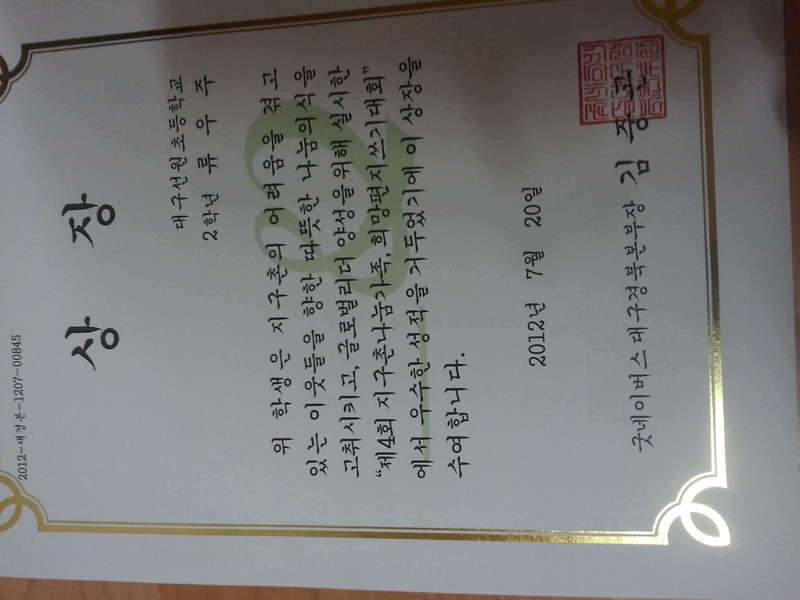 2012-대경본-1207-00845
상 장
대구선원초등학교
2학년 류 우 주
위 학생은 지구촌의 어려움을 겪고
있는 이웃들을 향한 따뜻한 나눔의식을
고취시키고, 글로벌리더 양성을 위해 실시한
“제4회 지구촌나눔가족, 희망편지쓰기대회”
에서 우수한 성적을 거두었기에 이 상장을
수여합니다.
2012년 7월 20일
굿네이버스대구경북본부장 김